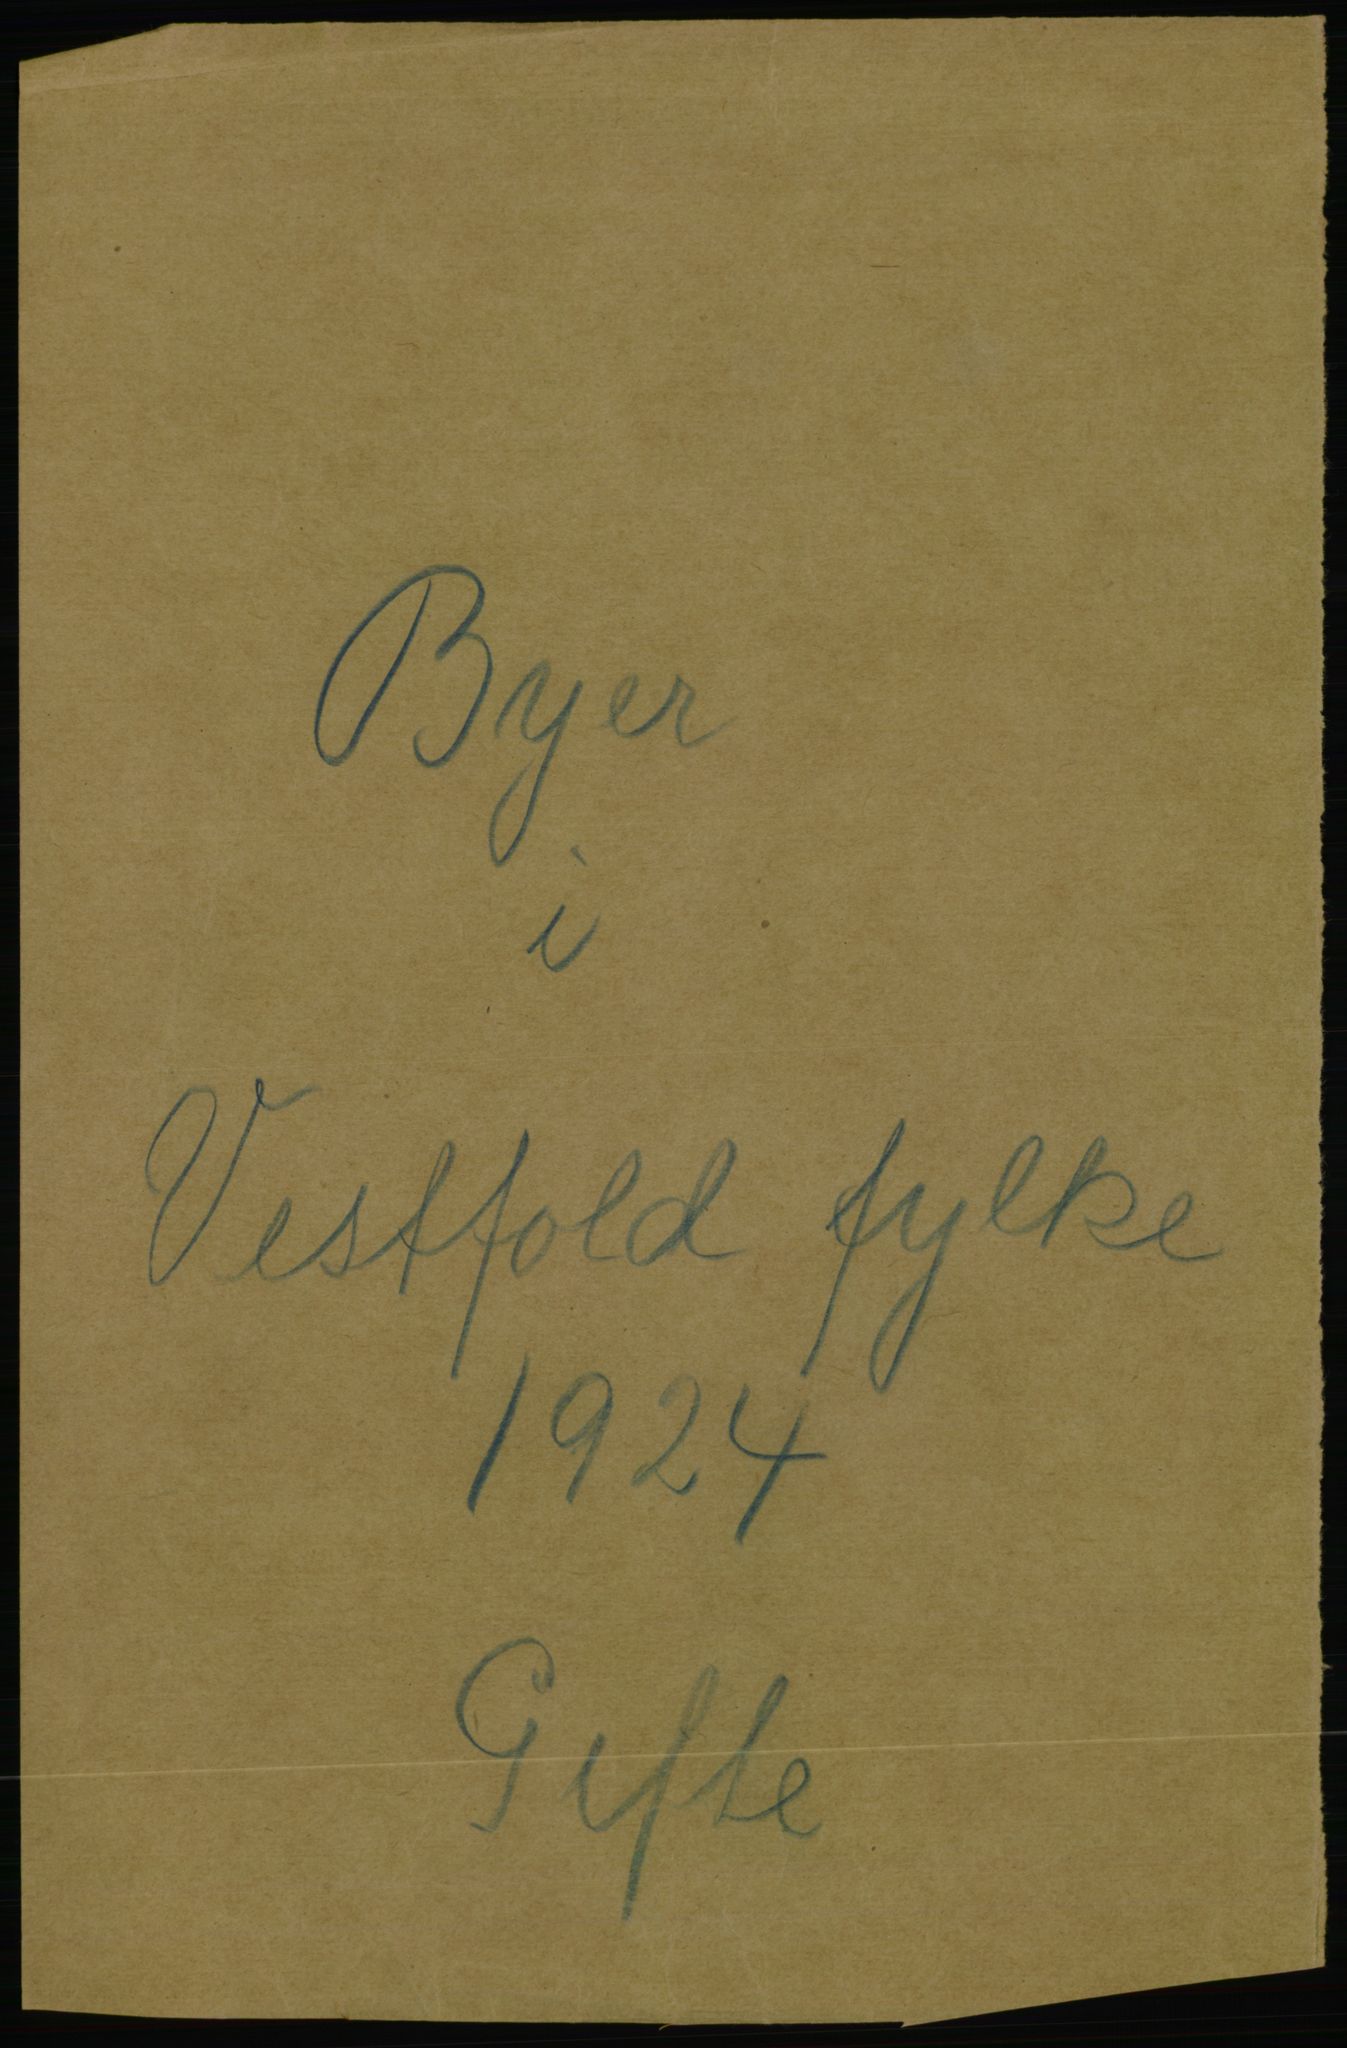 Byer
i
Vestfold fylke
1924
Gifte